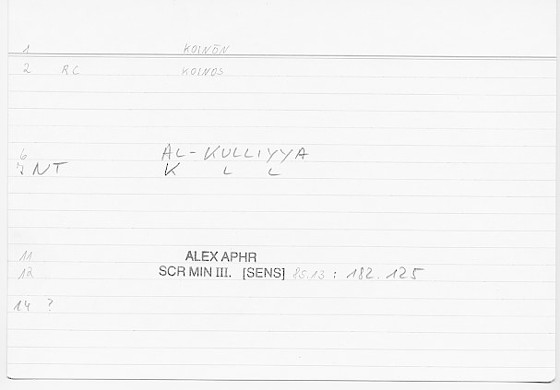 1 KOINÓN
2 RC KOINOS
6 AL-KULLIYYA
7 NT K L L
11 ALEX APHR
12 SCR MIN III. [SENS] 85.13 : 182.125
14 ?